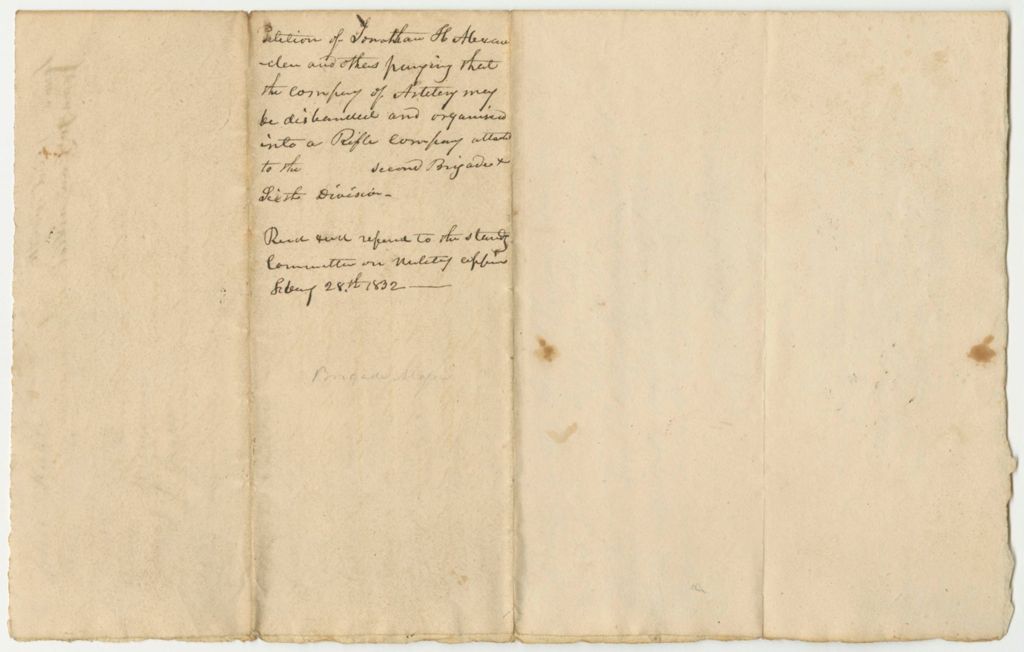 Petition of Jonathan H Alexan
-der and others praying that
the company of Artilery may
be disbanded and organised
into a Rifle company attatd
to the second Brigade &
Sixth Division -
Read and refered to the standg
Committee on Military affairs
28th 1832
Brigade Major